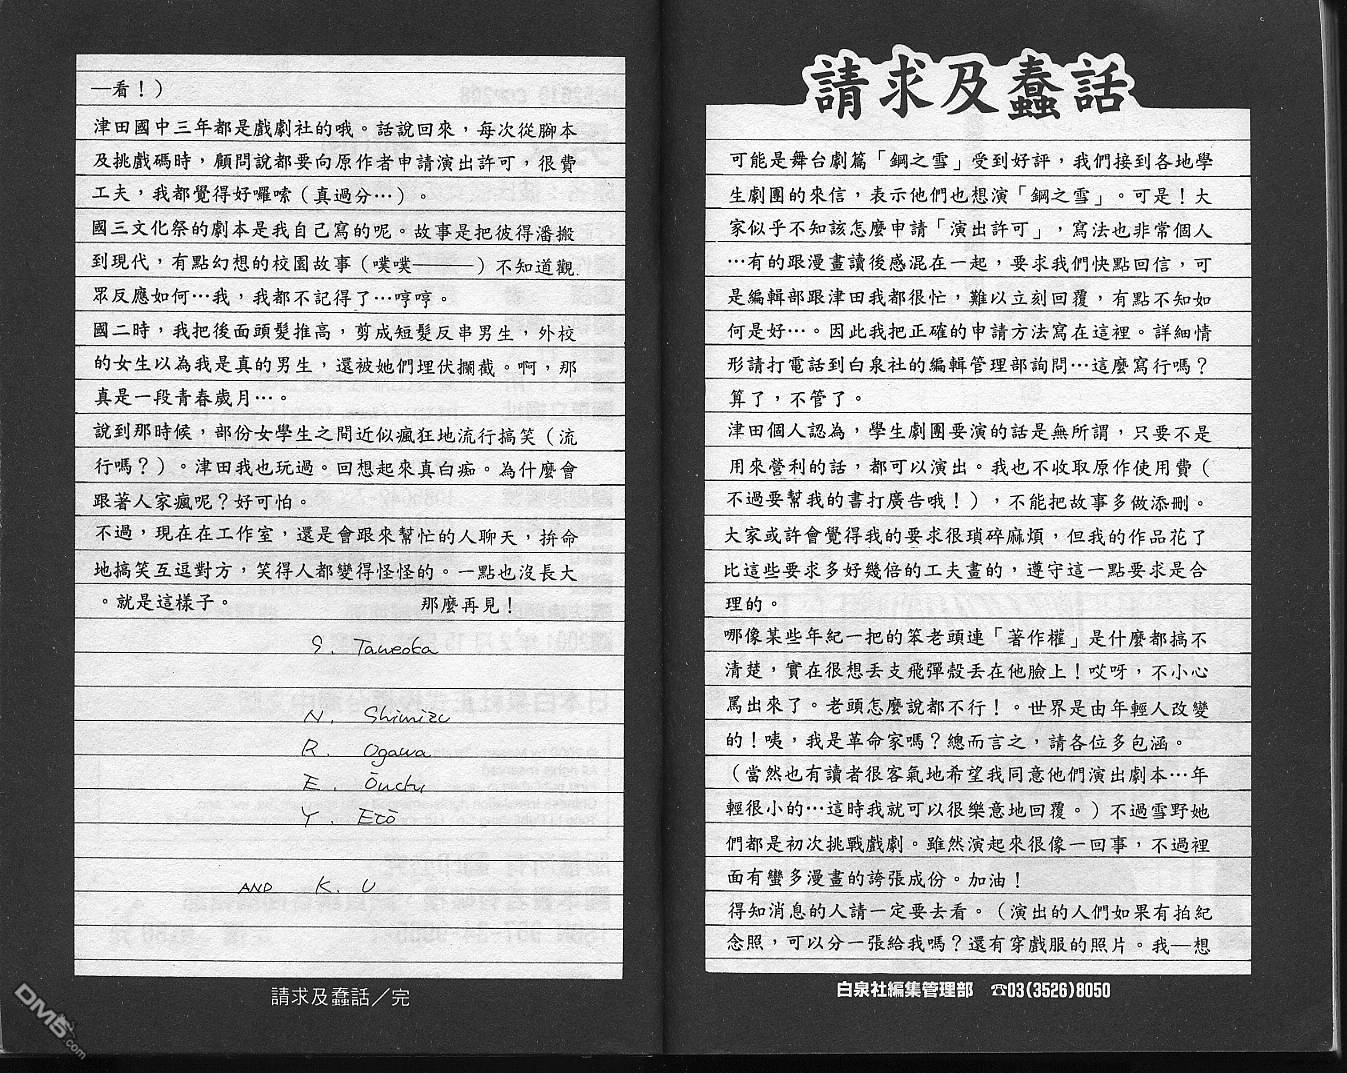 請求及蠢話
可能是舞台劇篇「鋼之雪」受到好評，我們接到各地學
生劇團的來信，表示他們也想演「鋼之雪」。可是！大
家似乎不知該怎麼申請「演出許可」，寫法也非常個人
…有的跟漫畫讀後感混在一起，要求我們快點回信，可
是編輯部跟津田我都很忙，難以立刻回覆，有點不知如
何是好…。因此我把正確的申請方法寫在這裡。詳細情
形請打電話到白泉社的編輯管理部詢問…這麼寫行嗎？
算了，不管了。
津田個人認為，學生劇團要演的話是無所謂，只要不是
用來營利的話，都可以演出。我也不收取原作使用費（
不過要幫我的書打廣告哦！），不能把故事多做添刪。
大家或許會覺得我的要求很瑣碎麻煩，但我的作品花了
比這些要求多好幾倍的工夫畫的，遵守這一點要求是合
理的。
哪像某些年紀一把的笨老頭連「著作權」是什麼都搞不
清楚，實在很想丟支飛彈殼丟在他臉上！哎呀，不小心
罵出來了。老頭怎麼說都不行！。世界是由年輕人改變
的！咦，我是革命家嗎？總而言之，請各位多包涵。
（當然也有讀者很客氣地希望我同意他們演出劇本…年
輕很小的…這時我就可以很樂意地回覆。）不過雪野她
們都是初次挑戰戲劇。雖然演起來很像一回事，不過裡
面有蠻多漫畫的誇張成份。加油！
得知消息的人請一定要去看。（演出的人們如果有拍紀
念照，可以分一張給我嗎？還有穿戲服的照片。我一想
白泉社編集管理部 ☎03(3526)8050
一看！）
津田國中三年都是戲劇社的哦。話說回來，每次從腳本
及挑戲碼時，顧問說都要向原作者申請演出許可，很費
工夫，我都覺得好囉嗦（真過分…）。
國三文化祭的劇本是我自己寫的呢。故事是把彼得潘搬
到現代，有點幻想的校園故事（噗噗———）不知道觀
眾反應如何…我，我都不記得了…哼哼。
國二時，我把後面頭髮推高，剪成短髮反串男生，外校
的女生以為我是真的男生，還被她們埋伏攔截。啊，那
真是一段青春歲月…。
說到那時候，部份女學生之間近似瘋狂地流行搞笑（流
行嗎？）。津田我也玩過。回想起來真白痴。為什麼會
跟著人家瘋呢？好可怕。
不過，現在在工作室，還是會跟來幫忙的人聊天，拚命
地搞笑互逗對方，笑得人都變得怪怪的。一點也沒長大
。就是這樣子。 那麼再見！
S. Taneoka
N. Shimizu
R. Ogawa
E. Ōuchi
Y. Etō
AND K. U
請求及蠢話／完
DM5.com